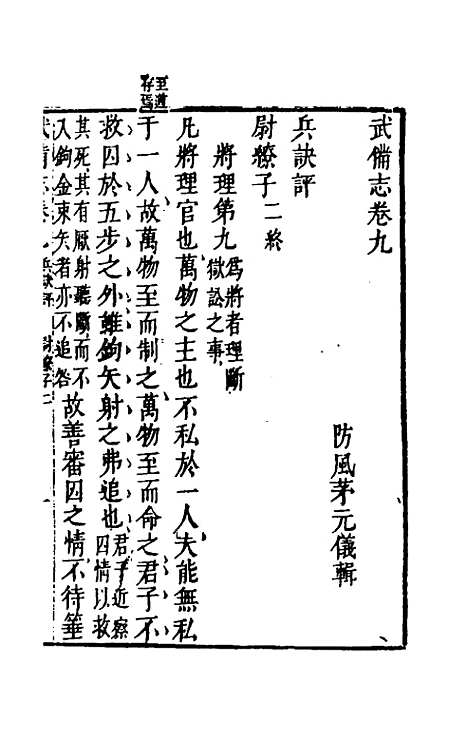 武備志卷九
防風茅元儀輯
兵訣評
尉繚子二終
將理第九 爲將者理斷獄訟之事
凡將理官也萬物之主也不私於一人夫能無私
于一人故萬物至而制之萬物至而命之君子不
至道存焉
救囚於五步之外雖鉤矢射之弗追也 君子近察囚情以故
其死其有厭射聽斷而不
入鉤金束矢者亦不追咎 故善審囚之情不待箠
武備志卷九 兵訣評 尉繚子二 一